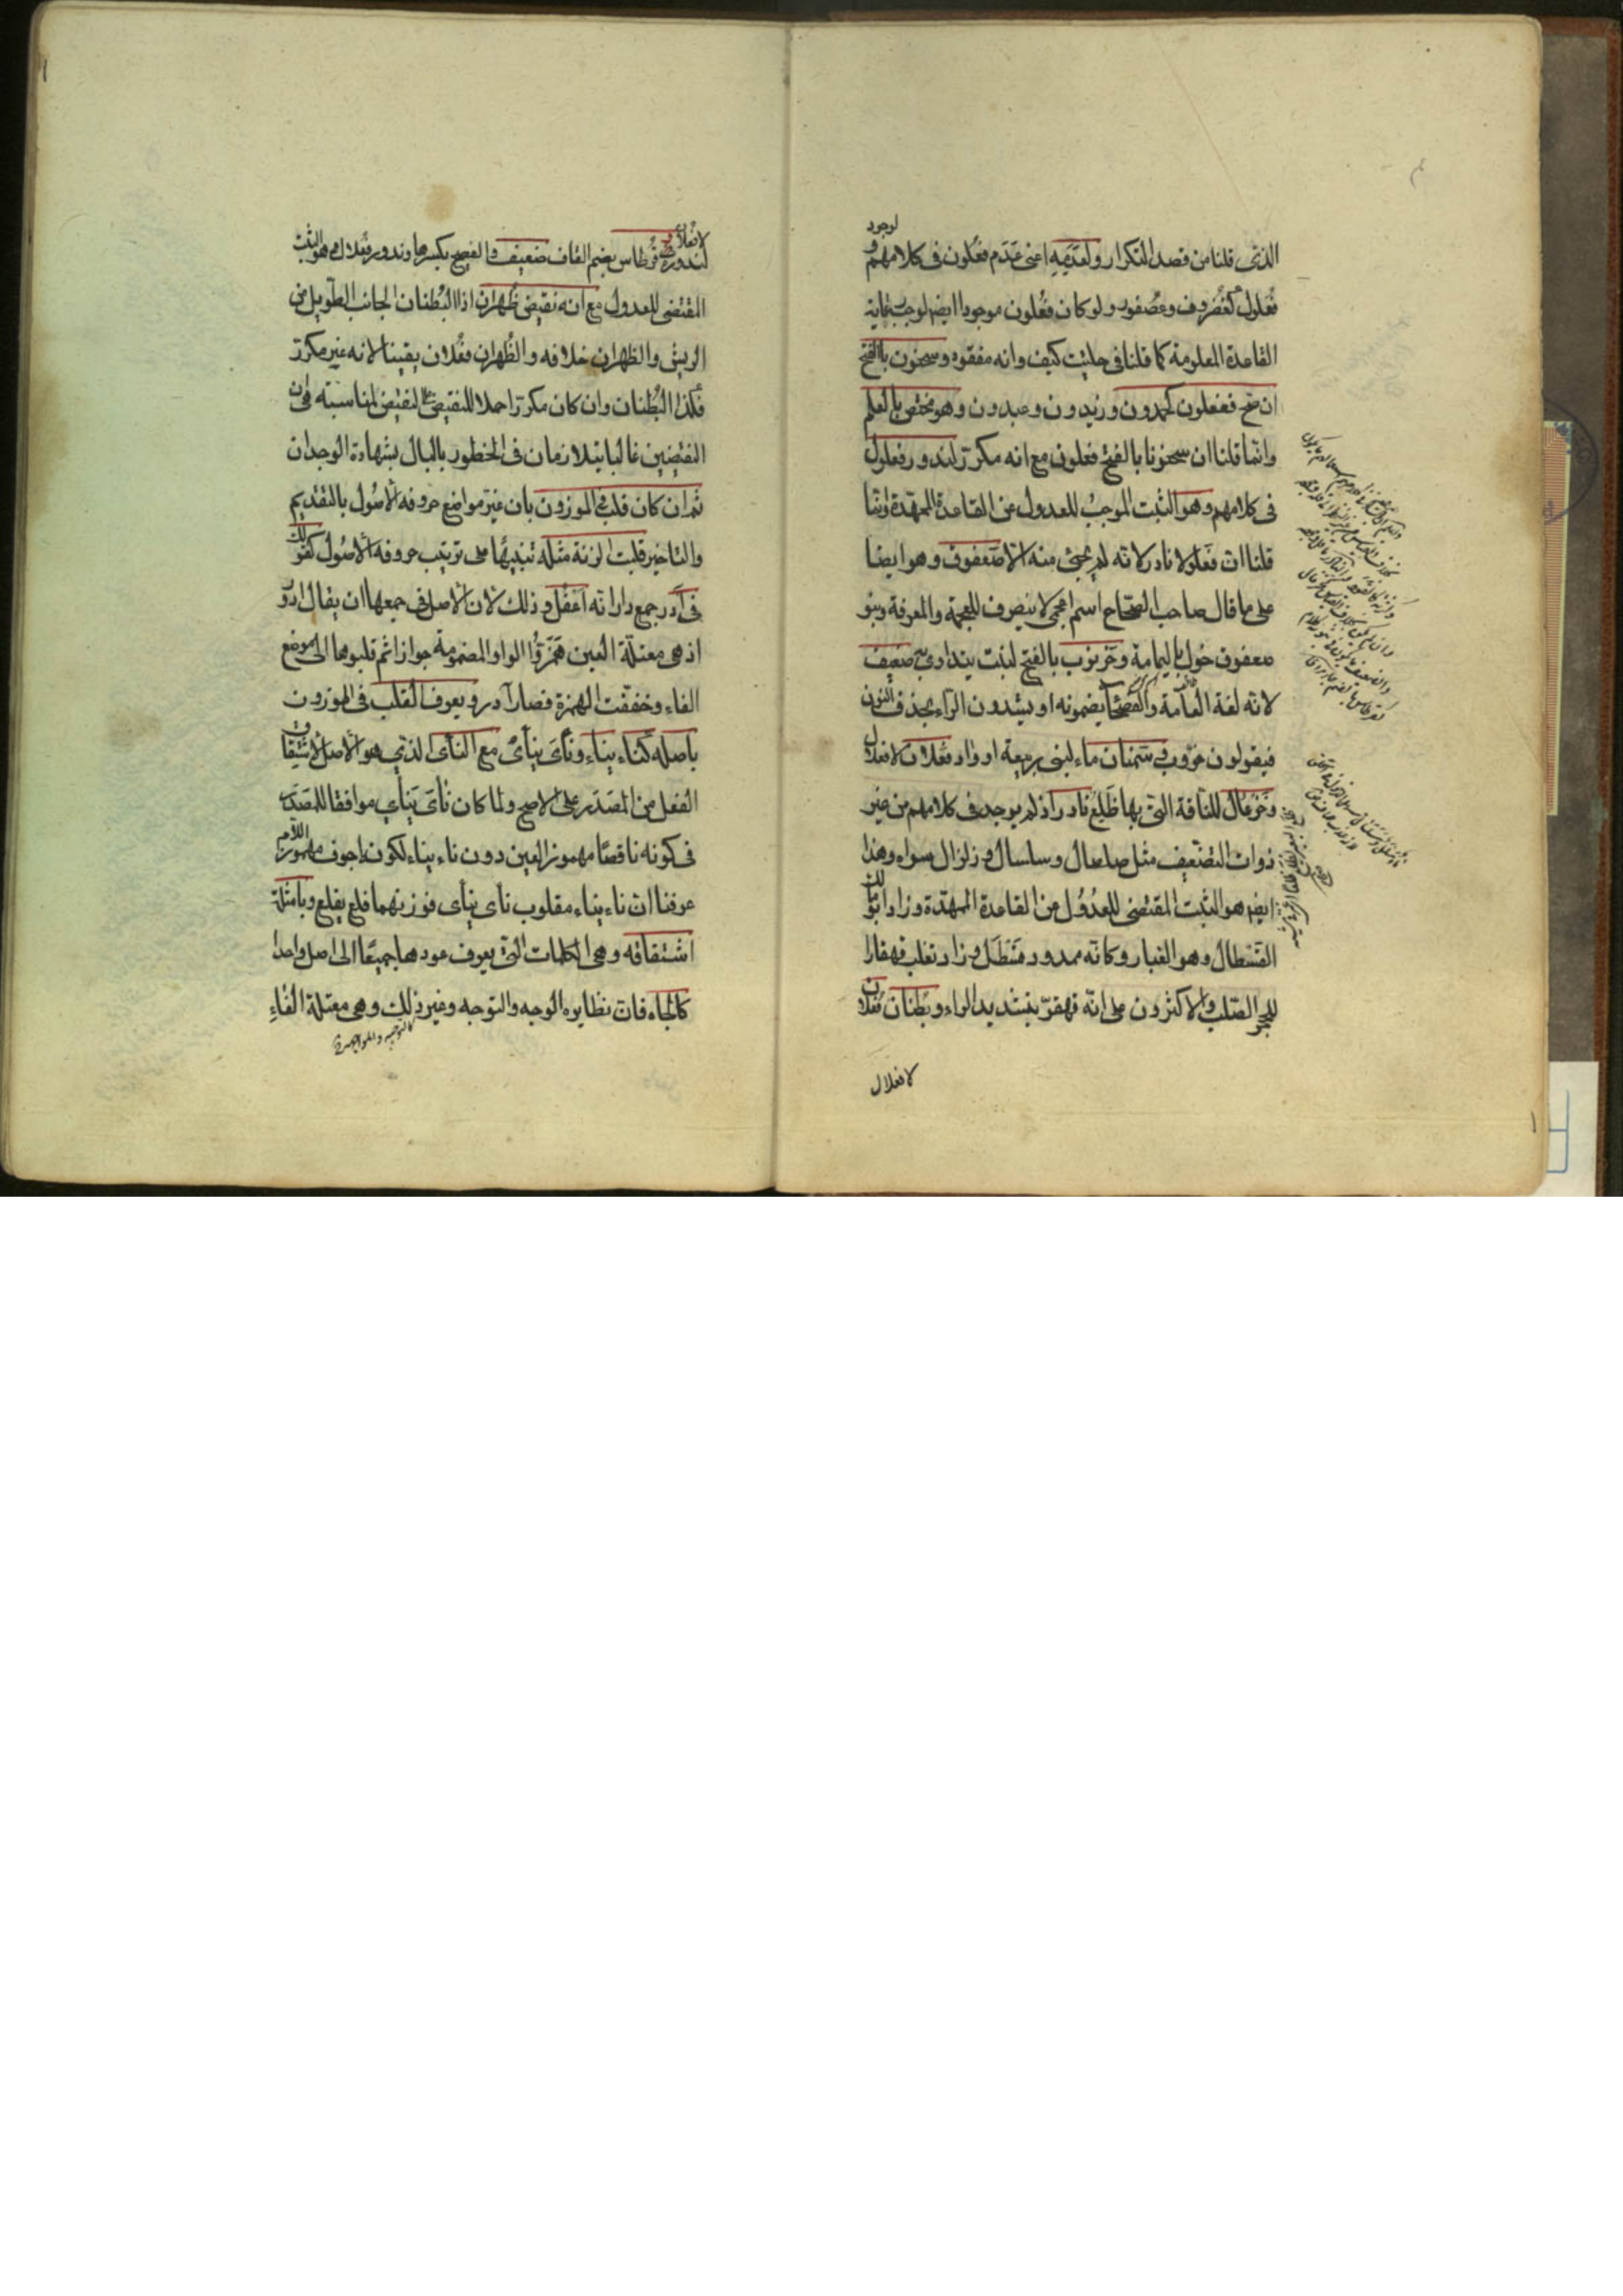 الذى قلنا من قصد التكرار ولعدمه اعنى عدم فعلون فى كلامهم و
لوجود
فُعلول كغُضروف وعُصفور ولو كان فُعلون موجودا ايضا لوجب رعاية
القاعدة المعلومة كما قلنا فى حلتيت كيف وانه مفقود وسحنون بالفتح
ان صح ففعلون كحمدون وزيدون وعبدون وهو مختص بالعلم
وانما قلنا ان سحنونا بالفتح فعلون مع انه مكرر لندور فعلول
فى كلامهم وهو الثبت الموجب للعدول من القاعدة الممهدة وانما
قلنا ان فَعلولا نادر لانه لم يجئ منه الا صَعفوق وهو ايضا
على ما قال صاحب الصحاح اسم اعجمى لا ينصرف للعجمة والمعرفة وبنو
صعفوق خول باليمامة وخَرنوب بالفتح لنبت يتداوى به ضعيف
لانه لغة العامة والفصحاء يضمونه او يشددون الراء بحذف النون
فيقولون خرّوب وسَمنان ماء لبنى ربيعة اوزاد فعلان لا فعلال
وخَزعال للناقة التى بها ظَلع نادر اذ لم يوجد فى كلامهم من غير
ذوات التضعيف مثل صلصال وسلسال وزلزال سواه وهذا
ايضا هو الثبت المقتضى للعُدُول من القاعدة الممهدة وزاد ابو مالك
القَسْطال وهو الغبار وكانه ممدود قَسْطَل وزاد ثعلب قهقارا
للحجر الصلب والاكثرون على انه قهقرّ بتشديد الراء وبُطنان فعلان
لا فعلال
لا فُعلال
لندوره وقُرطاس بضم القاف ضعيف والفصيح بكسرها وندور فُعلال هو الثبت
المقتضى للعدول مع انه نقيض ظُهران اذا البُطنان الجانب الطويل من
الريش والظهران خلافه والظُهران فُعلان يقينا لانه غير مكرر
فكذا البُطنان وان كان مكررا حملا للنقيض على النقيض لمناسبته فان
النقيضين غالبا يتلازمان فى الخطور بالبال بشهادة الوجدان
ثم ان كان قلب فى الموزون بان غير مواضع حروفه الاصُول بالتقديم
والتاخير قلبت الزنة مثله تنبيهًا على ترتيب حروفه الاصُول كقولك
فى آدر جمع دار انه اعفل وذلك لان الاصل فى جمعها ان يقال ادور
اذ هى معتلة العين همزوا الواو المضمومة جوازا ثم قلبوها الى موضع
الفاء وخففت الهمزة فصار آدر ويعرف القلب فى الموزون
باصله كناء يناء ونأى ينأى مع النأى الذى هو الاصل لاشتقاق
الفعل من المصدر على الاصح ولما كان نأى ينأى موافقا للمصدر
فى كونه ناقصًا مهموز العين دون ناء يناء لكونه اجوف مهموز اللام
عرفنا ان ناء يناء مقلوب نأى ينأى فوزنهما فلع يفلع وبامثلة
اشتقاقه وهى الكلمات التى يعرف عودها جميعًا الى اصل واحد
كالجاه فان نظايره الوجه والتوجه وغير ذلك وهى معتلة الفاءِ
كالتوجيه والمواجهة